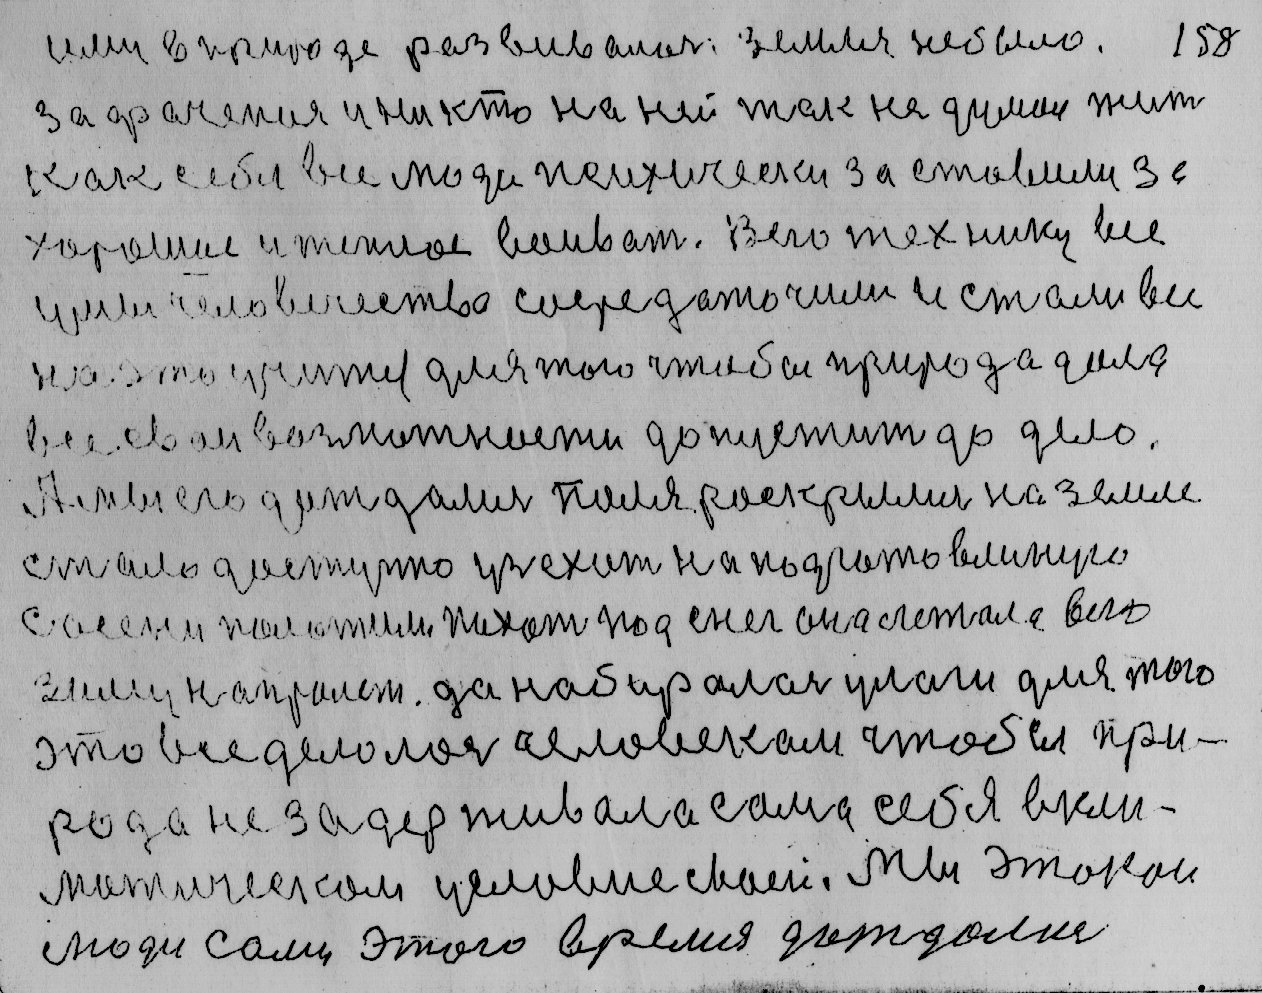 ими в природе развивалася. земля небыло. 158
заграчения и никто на ней так не думал жит
как себя все люди психически заставили за
хорошие и теплое воиват. Всю технику все
умы человечество сосредаточили и стали все
на это учится для того чтобы природа дала
все свои возможности допустит до дело.
А мы его дождалися поля роскрылися на земле
стало доступно уехат на подготовлиную
с осени положили пахат под снег она лежала всю
зиму напролет. да набиралася улаги для того
это все делолося человекам чтобы при-
рода не задерживала сама себя в кли-
матическом условие своей. Мы это кои
люди сами этого время дождалися